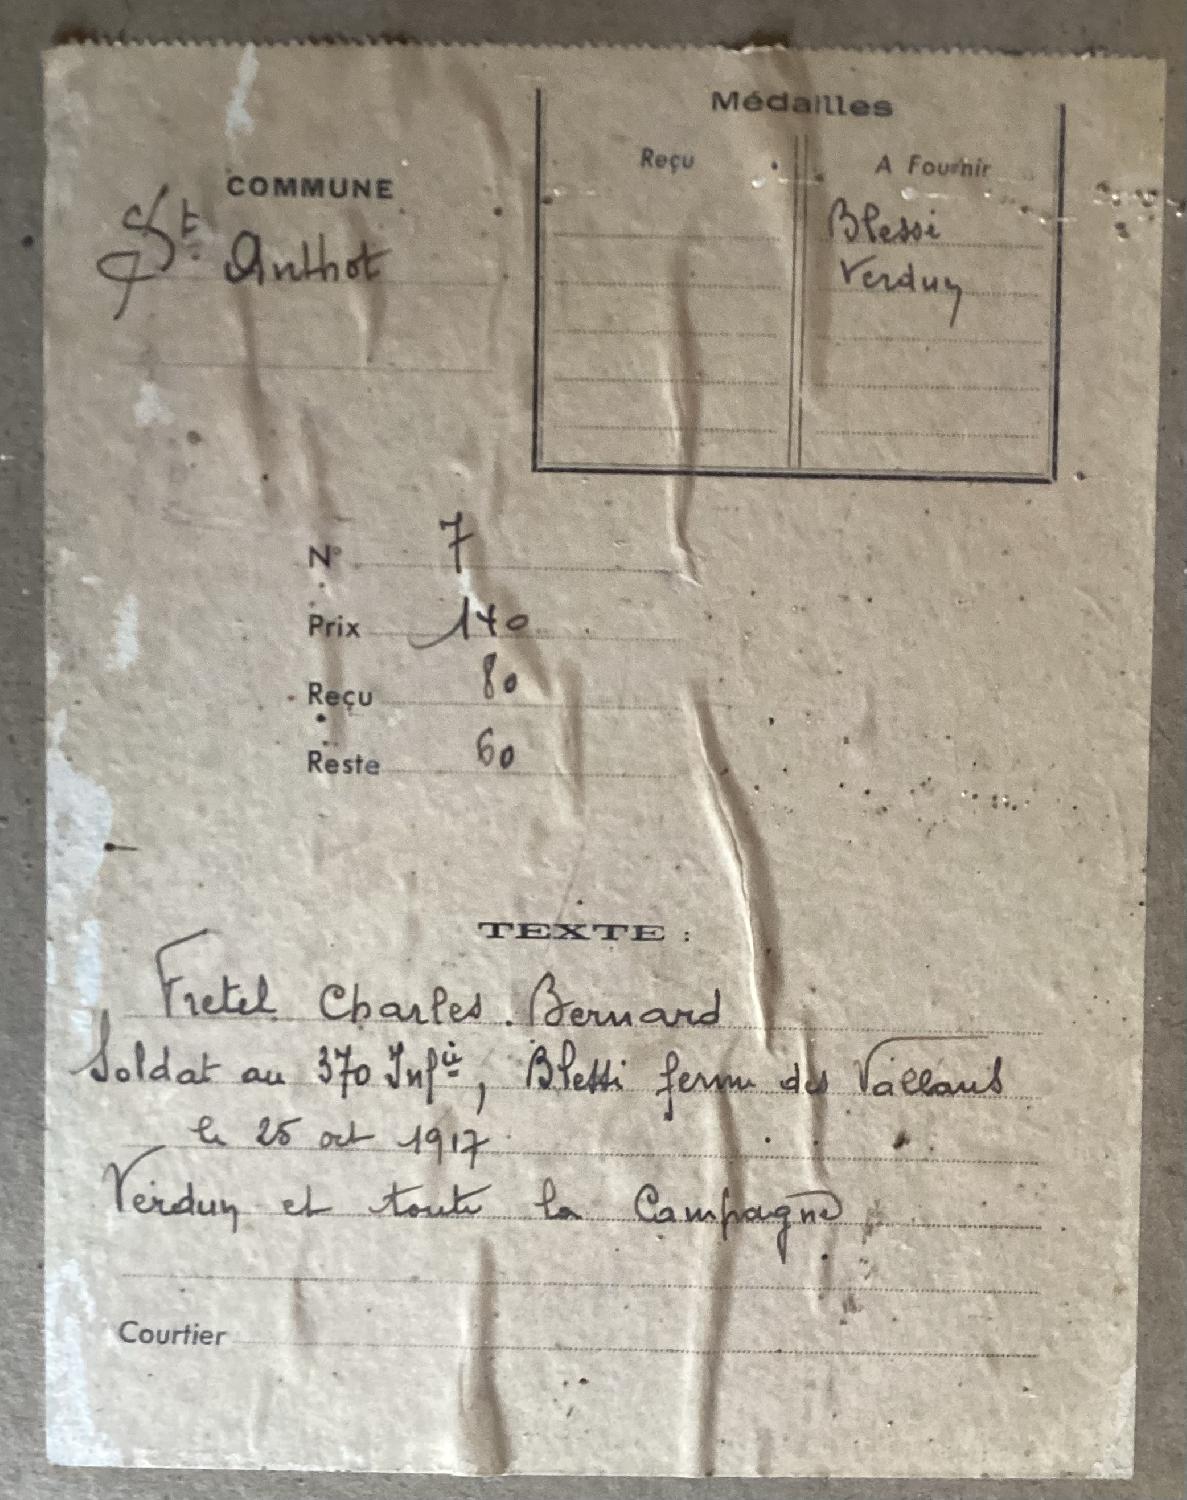 Médailles
Reçu
A Fournir
COMMUNE
St Anthot
Blessi
Verdun
N° 7
Prix 140
Reçu 80
Reste 60
TEXTE :
Fretel Charles. Bernard
Soldat au 370 Infie, Blessi ferme des Vallans
le 25 oct 1917
Verdun et toute la Campagne
Courtier